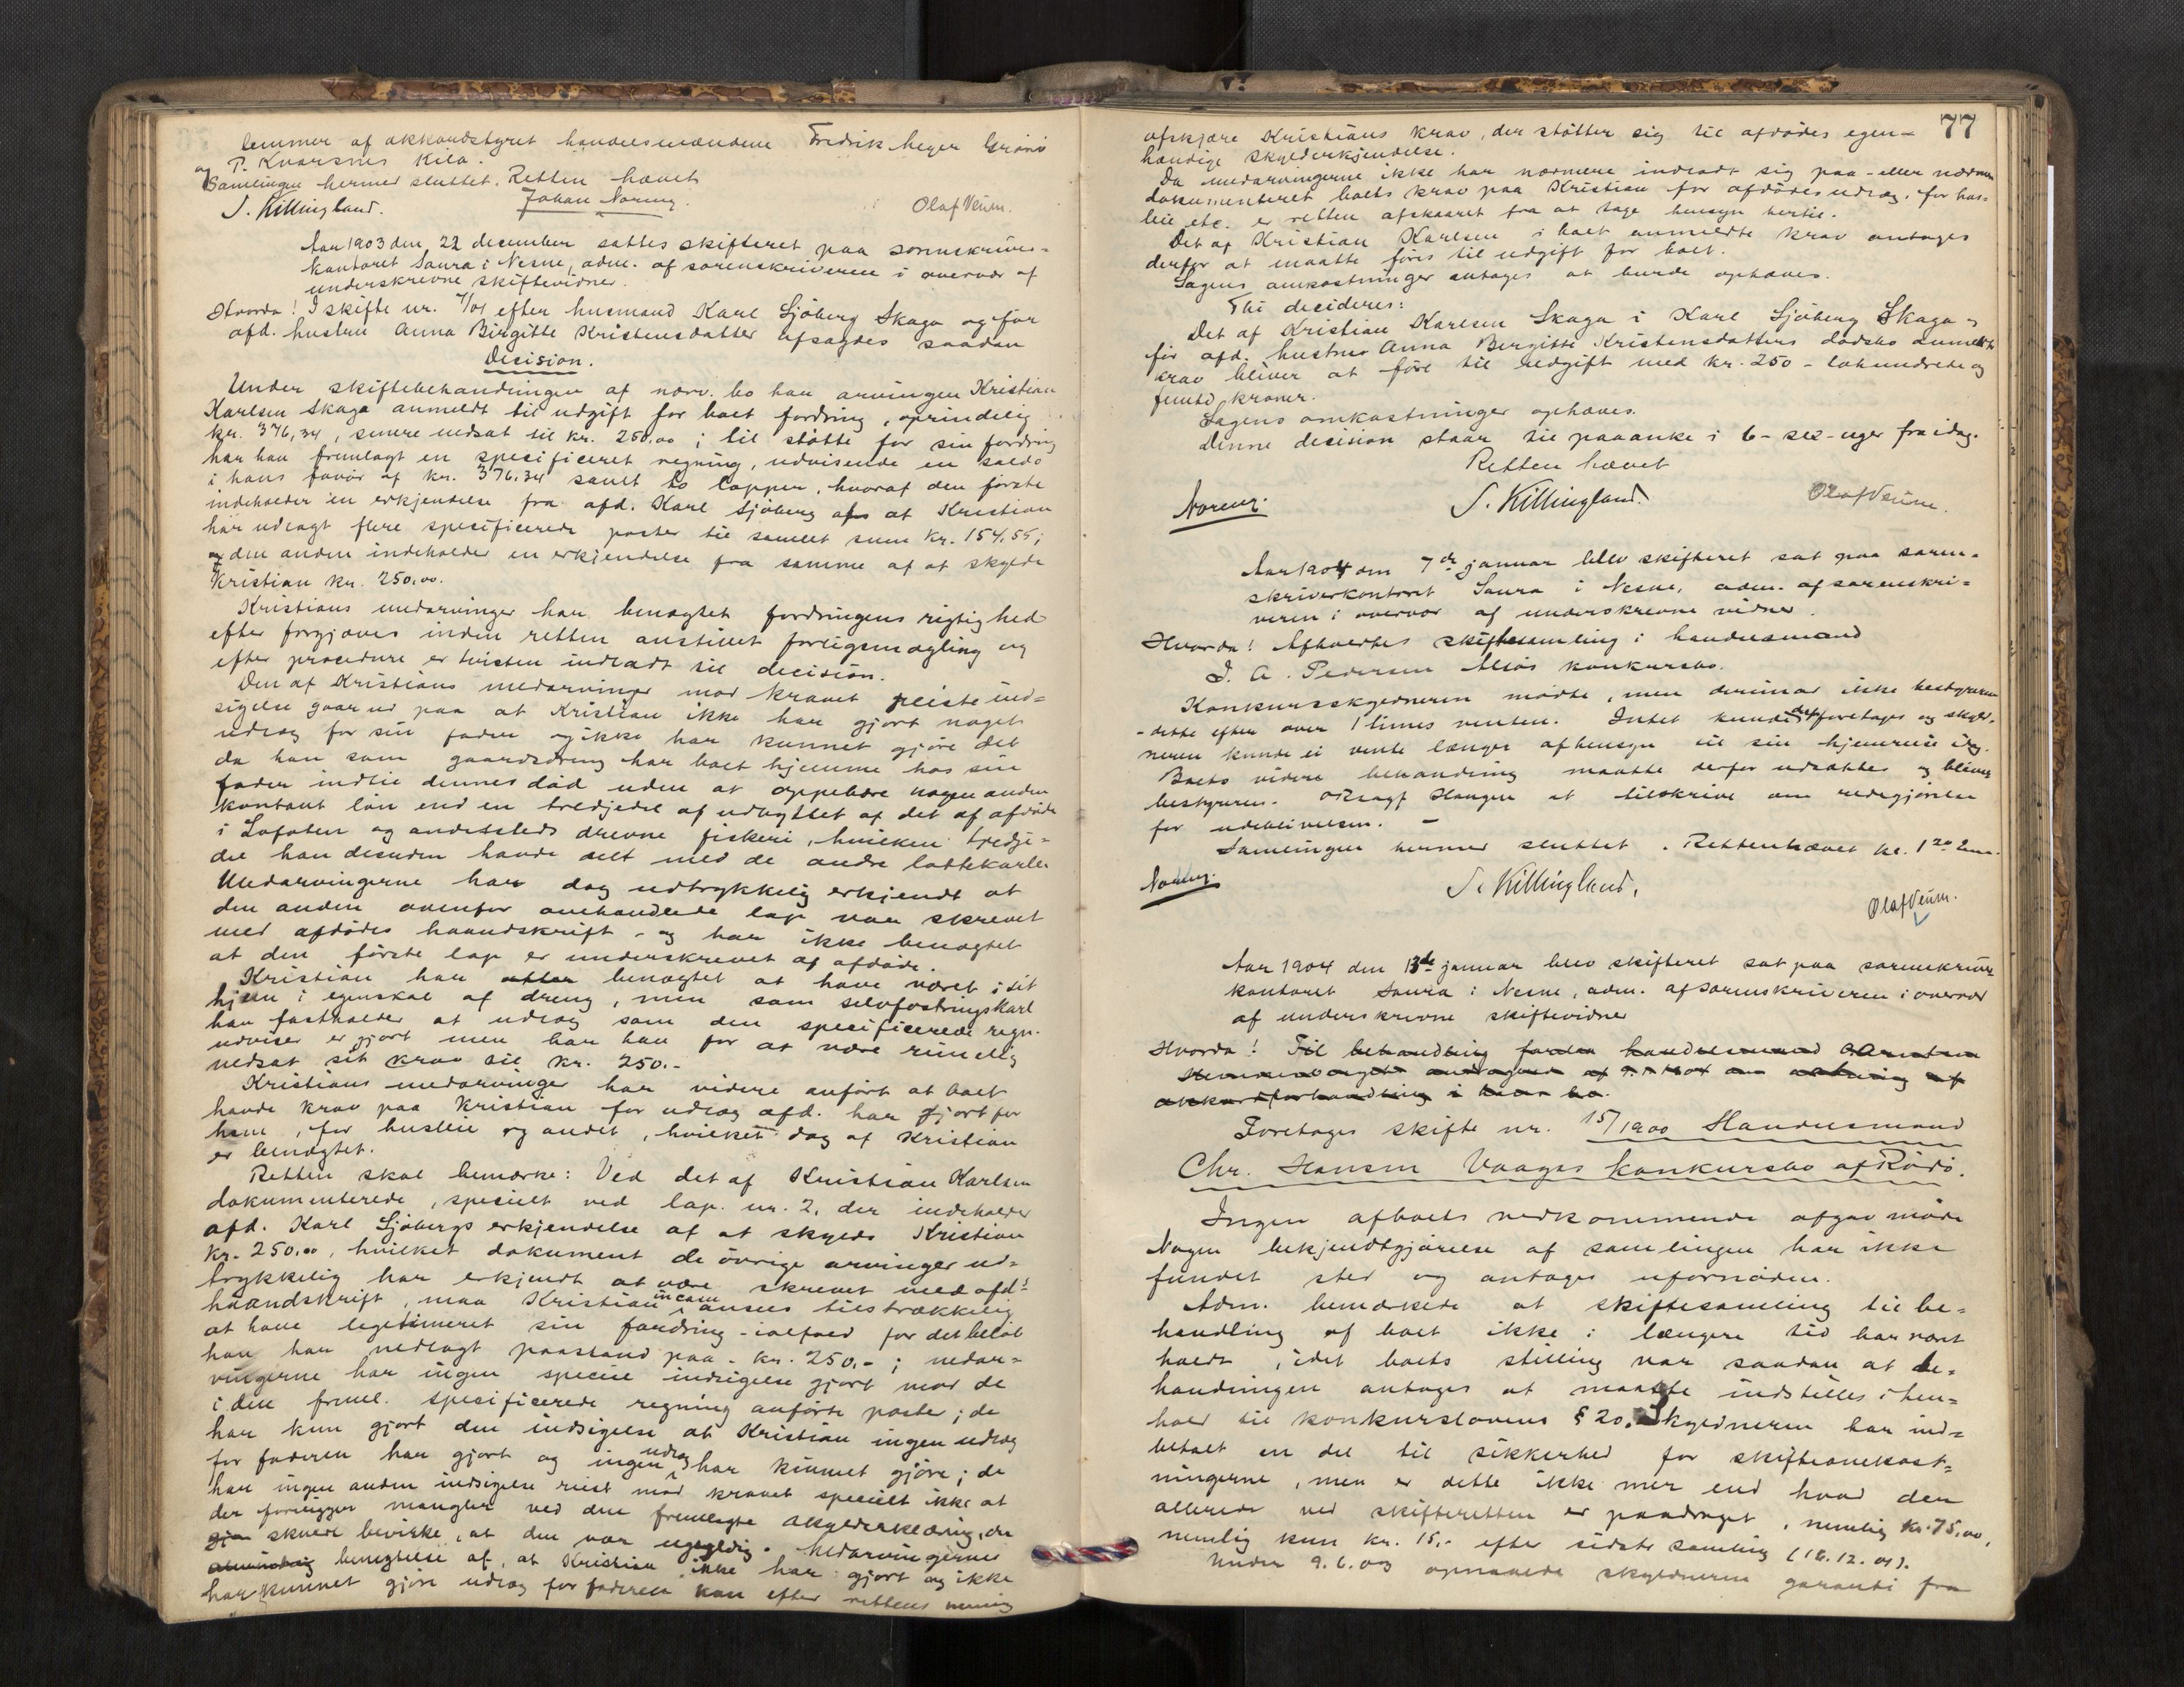 lemmer af akkordstyret handelsmændene Fredrik Meyer Grönö
og P. Kvarsnes Kila.
Samlingen hermed sluttet. Retten hævet
S. Killingland. Johan Noreng. Olaf Veum.
Aar 1903 den 22 december sattes skifteret paa sorenskriver-
kontoret Saura i Nesne, adm. af sorenskriveren i overvær af
underskrevne skiftevidner.
Hvorda! I skifte nr. 7/01 efter husmand Karl Sjöberg Skaga og før
afd. hustru Anna Birgitte Kristensdatter afsagdes saadan
Decision.
Under skiftebehandlingen af nærv. bo har arvingen Kristian
Karlsen Skaga anmeldt til udgift for boet fordring, oprindelig
kr. 376,34, senere nedsat til kr. 250,00; til støtte for sin fordring
har han fremlagt en specificeret regning, udvisende en saldo
i hans favør af kr. 376,34 samt to lapper, hvoraf den første
indeholder en erkjendelse fra afd. Karl Sjöberg af at Kristian
har udlagt flere specificerede poster til samlet sum kr. 154,55;
og den anden indeholder en erkjendelse fra samme af at skylde
Kristian kr. 250,00.
Kristians medarvinger har benægtet fordringens rigtighed
efter forgjæves inden retten anstillet forligsmægling og
efter procedure er tvisten indladt til decision.
Den af Kristians medarvinger mod kravet reiste ind-
sigelse gaar ud paa at Kristian ikke har gjort noget
udlæg for sin fader og ikke har kunnet gjøre det
da han som gaardsdreng har boet hjemme hos sin
fader indtil dennes död uden at oppebære nogen anden
kontant løn end en tredjedel af udbyttet af det af afdøde
i Lofoten og andetsteds drevne fiskeri, hvilken tredje-
del han desuden havde delt med de andre lottekarle
Medarvingerne har dog udtrykkelig erkjendt at
den anden ovenfor omhandlede lap var skrevet
med afdødes haandskrift - og har ikke benægtet
at den første lap er underskrevet af afdøde.
Kristian har benægtet at have været i sit
hjem i egenskab af dreng, men som selvfostringskarl
han fastholder at udlæg som den specificerede regn.
udviser er gjort men har han for at være rimelig
nedsat sit krav til kr. 250.-
Kristians medarvinger har videre anført at boet
havde krav paa Kristian for udlæg afd. har gjort for
ham, for husleie og andet, hvilket dog af Kristian
er benægtet.
Retten skal bemærke: Ved det af Kristian Karlsen
dokumenterede, specielt ved lap. nr. 2, der indeholder
afd. Karl Sjöbergs erkjendelse af at skylde Kristian
kr. 250,00, hvilket dokument de øvrige arvinger ud-
trykkelig har erkjendt at være skrevet med afd.s
haandskrift, maa Kristian in casu ansees tilstrækkelig
at have legitimeret sin fordring - ialfald for det beløb
han har nedlagt paastand paa - kr. 250,-; medar-
vingerne har ingen speciel indsigelse gjort mod de
i den freml. specificerede regning anførte poster; de
har kun gjort den indsigelse at Kristian ingen udlæg
for faderen har gjort og ingen udlæg har kunnet gjøre; de
har ingen anden indsigelse reist mod kravet specielt ikke at
der foreligger mangler ved den fremlagte skylderklæring, der
skulde bevirke, at den var ugyldig. Medarvingernes
benægtelse af, at Kristian ikke har gjort og ikke
har kunnet gjøre udlæg for faderen kan efter rettens mening
77
afskjære Kristians krav, der støtter sig til afdødes egen-
hændige skylderkjendelse.
Da medarvingerne ikke har nærmere indladt sig paa - eller nærmere
dokumenteret boets krav paa Kristian for afdødes udlæg, for hus-
leie etc. er retten afskaaret fra at tage hensyn hertil.
Det af Kristian Karlsen i boet anmeldte krav antages
derfor at maatte føres til udgift for boet.
Sagens omkostninger antages at burde ophæves.
Thi decideres:
Det af Kristian Karlsen Skaga i Karl Sjöberg Skaga -
før afd. hustru Anna Birgitte Kristensdatters dødsbo anmeldte
krav bliver at føre til udgift med kr. 250 - tohundrede og
femti kroner.
Sagens omkostninger ophæves.
Denne decision staar til paaanke i 6 - sex - uger fra idag.
Retten hævet
Noreng. S. Killingland. Olaf Veum.
Aar 1904 den 7de januar blev skifteret sat paa soren-
skriverkontoret Saura i Nesne, adm. af sorenskri-
veren i overvær af underskrevne vidner.
Hvorda! Afholdtes skiftesamling i handelsmand
J. A. Pedersen konkursbo.
Konkursskyldneren mødte, men derimod ikke bestyreren
- dette efter over 1 times venten. Intet kunde derfor foretages og skyld-
neren kunde ei vente længer af hensyn til sin hjemreise idag.
Boets videre behandling maatte derfor udsættes og bliver
bestyreren. Haugen at tilskrive om redegjørelse
for udeblivelsen. -
Samlingen hermed sluttet. Retten hævet kl. 1 20 em.
Noreng. S. Killingland, Olaf Veum.
Aar 1904 den 13de januar blev skifteret sat paa sorenskriver
kontoret Saura i Nesne, adm. af sorenskriveren i overvær
af underskrevne skiftevidner
Hvorda! Til behandling handelsmand
akkordforhandling i hans bo.
Foretages skifte nr. 15/1900 Handelsmand
Chr. Hansen Vaagas konkursbo af Rödö.
Ingen af boets vedkommende afgav møde
Nogen bekjendtgjørelse af samlingen har ikke
fundet sted og antages ufornøden.
Adm. bemærkede at skiftesamling til be-
handling af boet ikke i længere tid har vært
holdt, idet boets stilling var saadan at be-
handlingen antages at maatte indstilles i hen-
hold til konkurslovens § 20. Skyldneren har ind-
betalt en del til sikkerhed for skifteomkost-
ningerne, men er dette ikke mer end hvad der
allerede ved skifteretten er paadraget, nemlig kr. 75,00,
nemlig kun kr. 15,- efter sidste samling (18.12.01).
Under 9.6.03 opnaaede skyldneren garanti fra